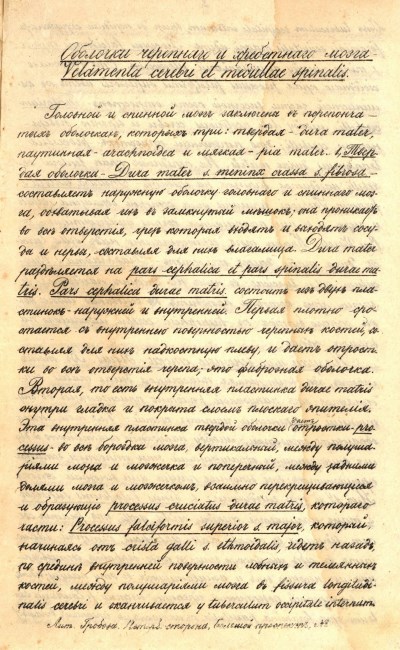 Оболочки черепнаго и хребетнаго мозга
Velamenta cerebri et medullae spinalis.
Головной и спинной мозг заключены в перепонча-
тых оболочках, которых три: твердая - dura mater,
паутинная - arachnoidea и мягкая - pia mater. 1, Твер-
дая оболочка - Dura mater s. meninx crassa s. fibrosa -
составляет наружную оболочку головнаго и спиннаго моз-
га, охватывая их в замкнутый мешок; она проникает
во все отверстия, чрез которыя входят и выходят сосу-
ды и нервы, составляя для них влагалища. Dura mater
разделяется на pars cephalica et pars spinalis durae ma-
tris. Pars cephalica durae matris, состоит из двух пла-
стинок - наружней и внутренней. Первая плотно сро-
стается с внутреннею поверхностью черепных костей, со-
ставляя для них надкостную плеву, и дает отрост-
ки во все отверстия черепа; это фиброзная оболочка.
Вторая, то есть внутренняя пластинка durae matris
внутри гладка и покрыта слоем плоскаго эпителия.
Эта внутренняя пластинка твердой оболочки дает отростки - pro-
cessus - во все бороздки мозга, вертикальный, между полуша-
риями мозга и мозжечка и поперечной, между задними
долями мозга и мозжечком, взаимно перекрещивающиеся
и образующие processus cruciatus durae matris, котораго
части: Processus falciformis superior s. major, который
начинаясь от crista galli s. ethmoidalis, идет назад,
по средине внутренней поверхности лобных и теменных
костей, между полушариями мозга в fissura longitudi-
nalis cerebri и оканчивается у tuberculum occipitale internum.
Лит. Гробова, Петерб. сторона, Большой проспект,